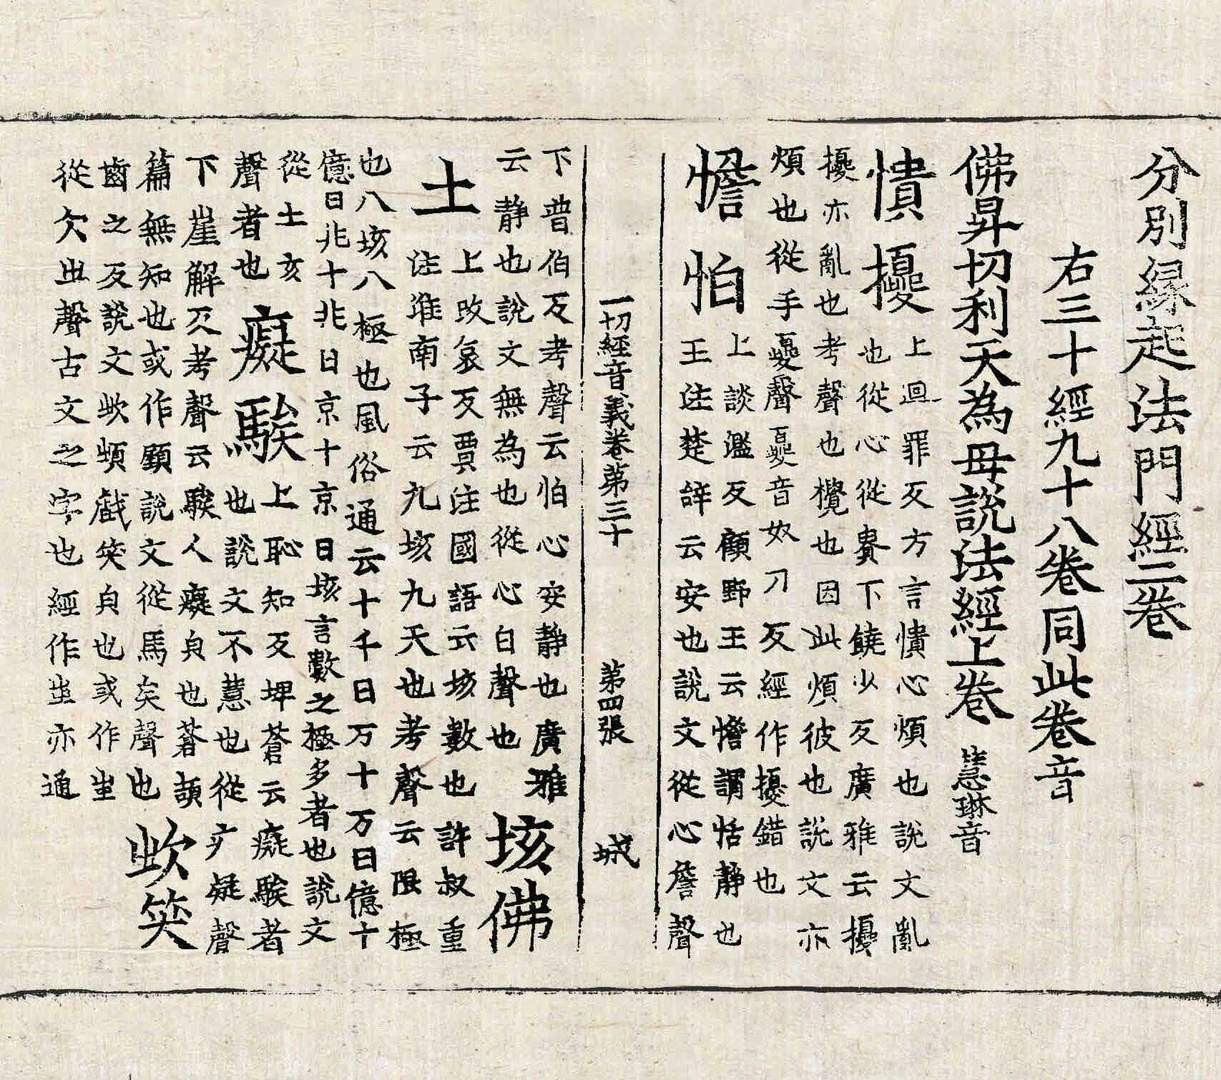 分別緣起法門經二卷
右三十經九十八卷同此卷音
佛昇忉利天為母說法經上卷 慧琳音
憒擾 上迴罪反方言憒心煩也說文亂
也從心從貴下饒少反廣雅云擾
擾亦亂也考聲也攪也因此煩彼也說文亦
煩也從手夒聲夒音奴刀反經作擾錯也
憺怕 上談濫反顧野王云憺謂恬靜也
王注楚辭云安也說文從心詹聲
一切經音義卷第三十 第四張 城
下普伯反考聲云怕心安靜也廣雅
云静也說文無為也從心白聲也 垓佛
土 上改哀反賈注國語云垓數也許叔重
注淮南子云九垓九天也考聲云限極
也八垓八極也風俗通云十千曰万十万曰億十
億曰兆十兆曰京十京曰垓言數之極多者也說文
從土亥
聲者也 癡騃 上恥知反埤蒼云癡騃者
也說文不慧也從疒疑聲
下崖解反考聲云騃人癡皃也蒼頡
篇無知也或作顗說文從馬矣聲也 欪笑
齒之反說文欪頓戲笑皃也或作蚩
從欠㞢聲古文之字也經作蚩亦通